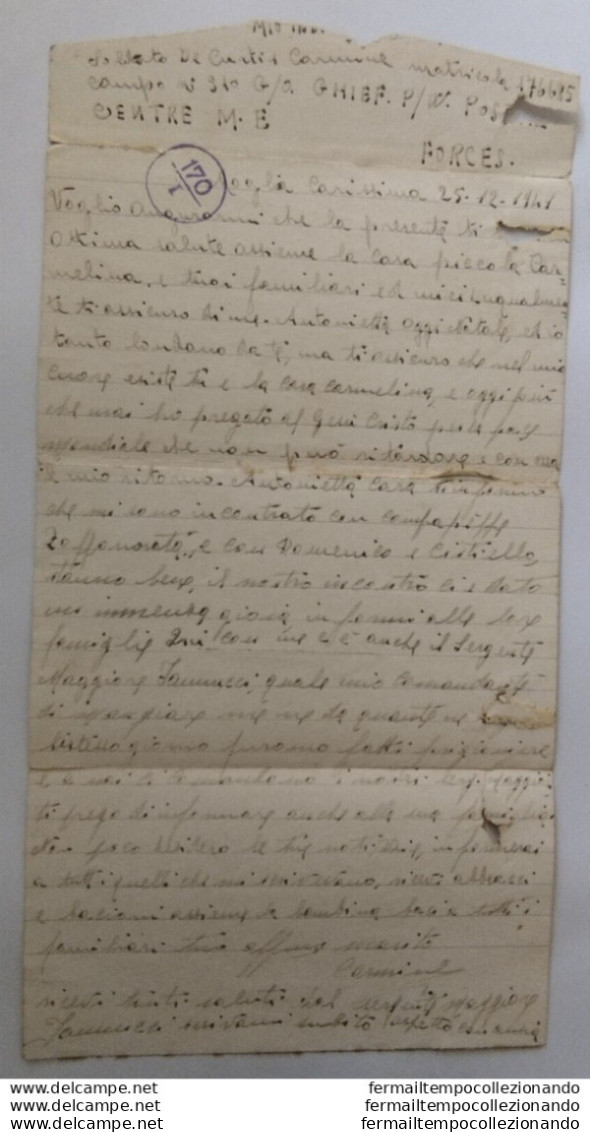 MIO IND.
Soldato De Curtis Carmine matricola 176685
campo N 310 G/O GHIEF. P/W. POST
CENTRE M. E
FORCES.
170
I
Moglia Carissima 25-12-1941
Voglio augurarmi che la presente ti
ottima salute assieme la cara piccola Car=
melina, e tuoi familiari ed miei. Ugualmen=
te ti assicuro di me. Antonietta oggi Natale, ed io
tanto londano da te, ma ti assicuro che nel mio
cuore esiste tu e la cara Carmelina, e oggi più
che mai ho pregato al Gesù Cristo per la pace
mondiale che non può ritardare e con essa
il mio ritorno. Antonietta cara t'informo
che mi sono incontrato con
e con Domenico e
stanno bene, il nostro incontro ci è dato
un immensa gioia informi alle loro
famiglie Qui con me c'è anche il Sergente
Maggiore Iannucci, quale mio comandante
di mangiare me ne da quante ne
istesso giorno furomo fatti prigioniere
e a noi ci comandano i nostri serg. maggio.
ti prego di informare anche alla sua famiglia.
poco desidero le tue notizie, informerai
a tutti quelli che mi scrivevano, ricevi abbracci
e bacioni assieme la bambina bacia tutti i
familiari tuo affmo marito
Carmine
ricevi tanti saluti dal sergente maggiore
Iannucci scrivimi subito aspetto con ansia
www.delcampe.net fermailtempocollezionando
www.delcampe.net fermailtempocollezionando
www.delcampe.net fermailtempocollezionando